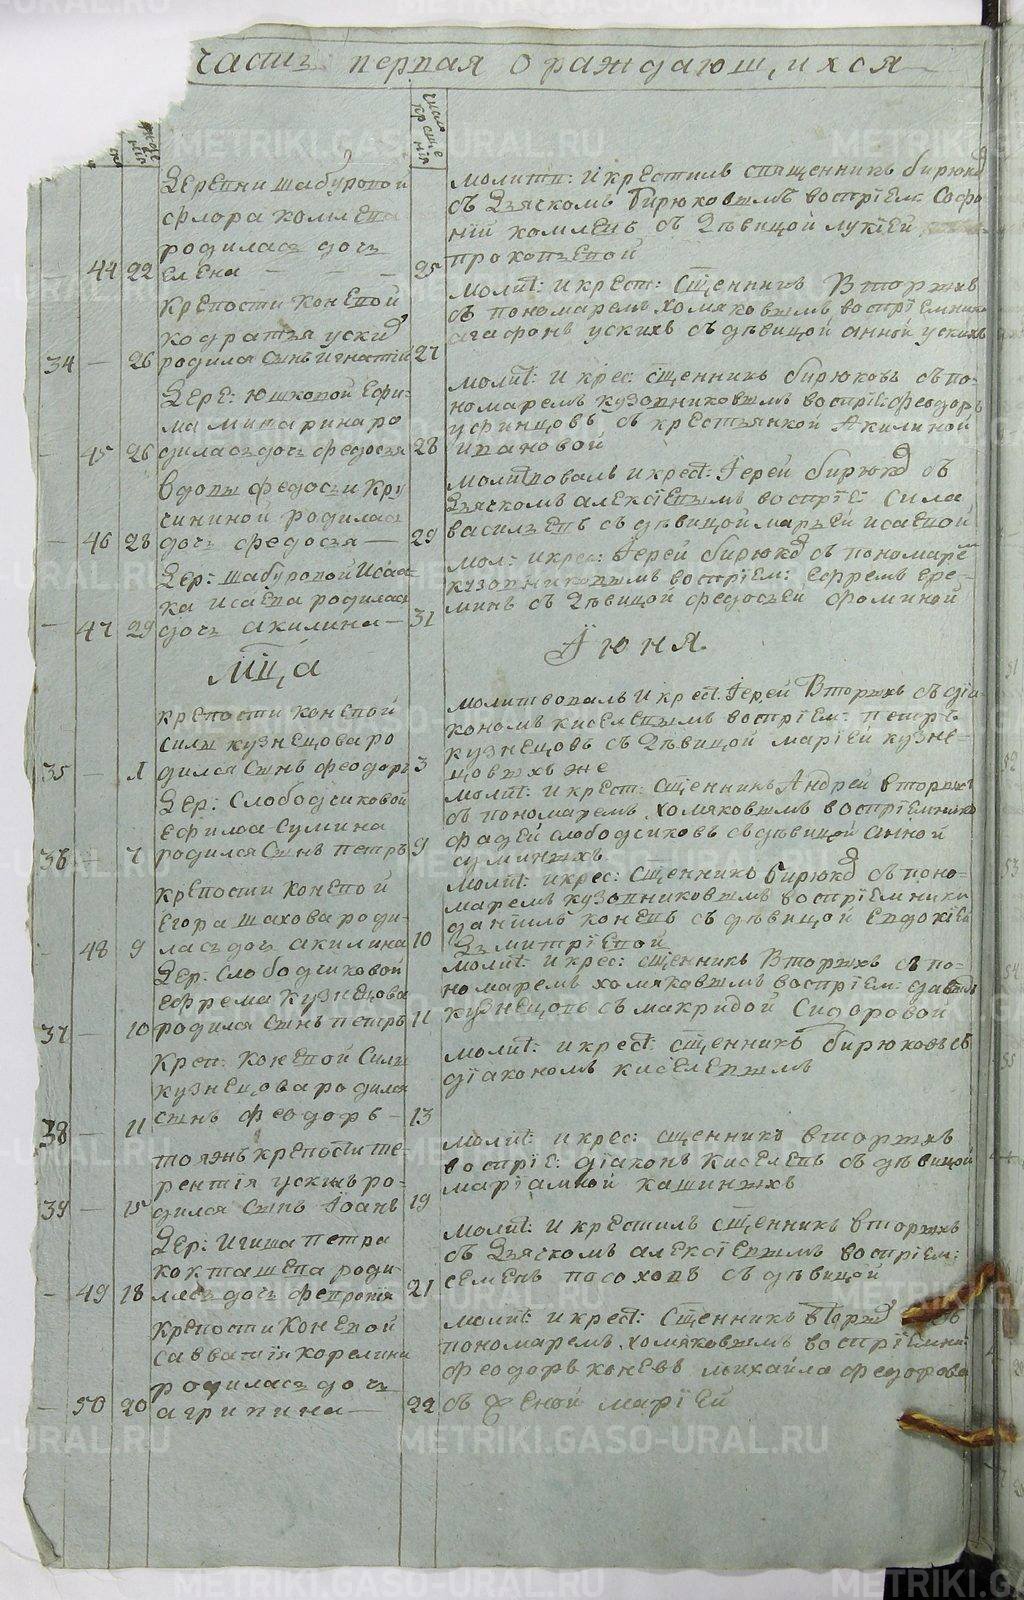 часть первая о раждающихся
число
кр още
нія
деревни шабуровой
флора комлева
родилась дочь
44 22 елена
25
молитв: и крестилъ священникъ бирюковъ
съ дьячкомъ бирюковымъ воспріем: софо
ній комлевъ съ дѣвицой лукіей
прокопьевой
крепости коневой
кодратья ускихъ
34 — 26 родился сынъ игнатій
27
молит: и крест: сщенникъ Вторыхъ
съ пономаремъ хомяковымъ воспріемник
агафонъ ускихъ съ дѣвицой анной ускихъ
дере: юшковой ефи-
ма митарина ро
— 45 26 дилась дочь федосья
28
молит: и крес: сщенникъ бирюковъ съ по-
номаремъ кузовниковымъ воспріе: феодоръ
усринцовъ съ крестьянкой Акилиной
ивановой
вдовы федосьи кру
чининой родилась
— 46 28 дочь федосья —
29
молитвовалъ и крест: Іерей бирюковъ съ
дьячкомъ алексіевымъ воспріе: сила
васильевъ съ дѣвицой марьей исаевой
дер: шабуровой Исаа-
ка исаева родилась
— 47 29 дочь акилина —
31
мол: и крес: Іерей бирюковъ съ пономаре
кузовниковымъ воспріем: ефремъ ере-
минъ съ дѣвицой федосьей фоминой
мца Іюня
крепости коневой
силы кузнецова ро
35 — 1 дился сынъ феодоръ
3
молитвовалъ и крест: Іерей Вторыхъ съ діа
кономъ киселевымъ воспріем: петръ
кузнецовъ съ дѣвицой маріей кузне-
цовыхъ же
дер: Слободчиковой
ефима сумина
36 — 7 родился сынъ петръ
9
молит: и крест: сщенникъ Андрей вторыхъ
съ пономаремъ хомяковымъ воспріемнико
фадей слободсиковъ съ дѣвицой анной
суминыхъ
крепости коневой
Егора шахова роди-
— 48 9 лась дочь акилина
10
молит: и крес: сщенникъ бирюковъ съ поно-
маремъ кузовниковымъ воспріемники
даніилъ коневъ съ дѣвицой Евдокіей
дмитріевой
дер: слободчиковой
ефрема кузнецова
37 — 10 родился сынъ петръ
11
молит: и крес: сщенникъ Вторыхъ съ по-
номаремъ хомяковымъ воспріем: давыдъ
кузнецовъ съ макридой Сидоровой
креп: Коневой Силы
кузнецова родился
38 — 11 сынъ феодоръ —
13
молит: и крест: сщенникъ бирюковъ съ
діакономъ киселевымъ
тояжъ крепости те-
рентія ускихъ ро-
39 — 15 дился сынъ Іоанъ
19
молит: и крес: сщенникъ вторыхъ
воспріе: діаконъ киселевъ съ дѣвицой
маріамной кашиныхъ
дер: Игиша петра
кокташева роди-
— 49 18 лась дочь февронія
21
молит: и крестилъ сщенникъ вторыхъ
съ дьячкомъ алексіевымъ воспріем:
семенъ посоховъ съ дѣвицой
крепости коневой
савватія корелина
родилась дочь
— 50 20 агрипина —
22
молит: и крест: сщенникъ вторыхъ съ
пономаремъ хомяковымъ воспріемни
феодоръ коневъ михайла федорова
съ женой маріей